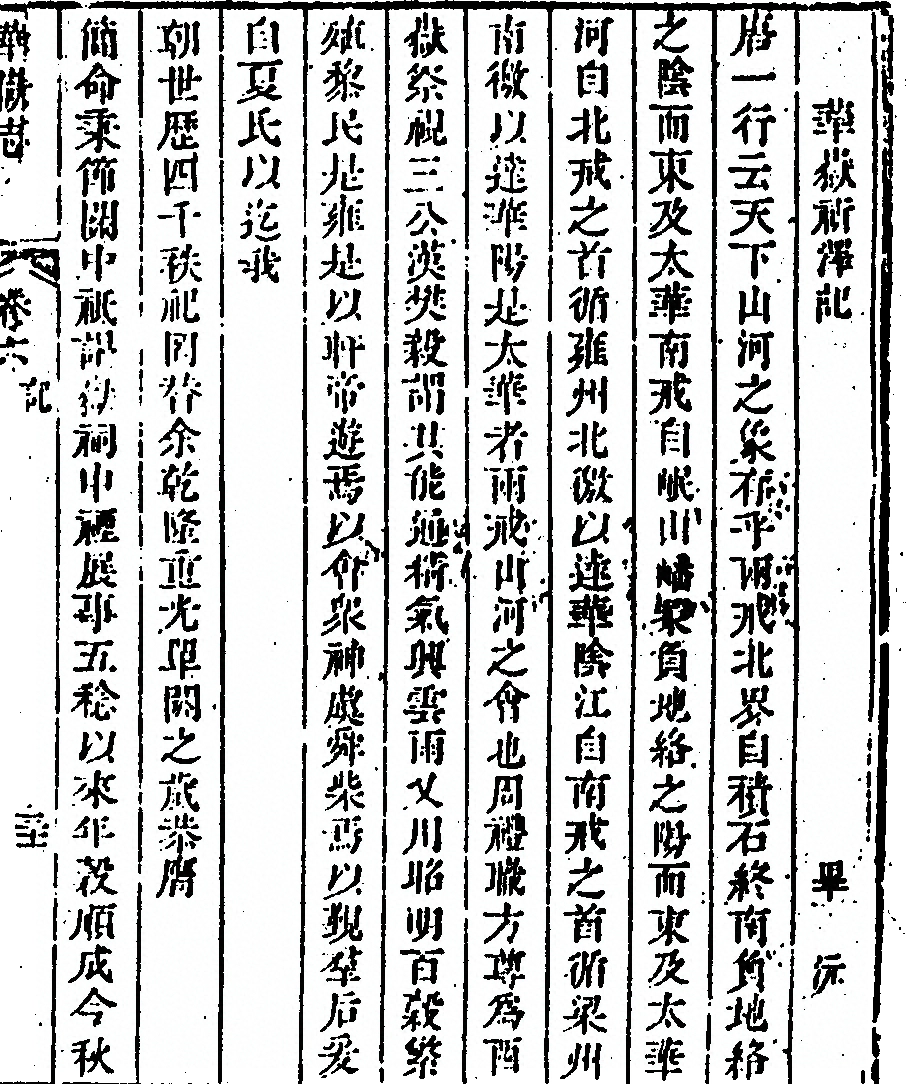 華嶽祈澤記　畢沅
唐一行云天下山河之象存乎兩戒北界自積石終南負地絡
之陰而東及太華南戒自岷山嶓冢負地絡之陽而東及太華
河自北戒之首循雍州北徼以達華陰江自南戒之首循梁州
南徼以達華陽是太華者兩戒山河之會也周禮職方尊為西
嶽祭視三公漢樊毅謂其能通精氣興雲雨乂川昭明百穀繁
殖黎民是雍是以軒帝遊焉以會眾神處舜柴焉以覲羣后爰
自夏氏以迄我
朝世歷四千秩祀罔替余乾隆重光單閼之歲恭膺
簡命秉節關中祇謁嶽祠申禋展事五稔以來年穀順成今秋
華嶽志
卷六
記